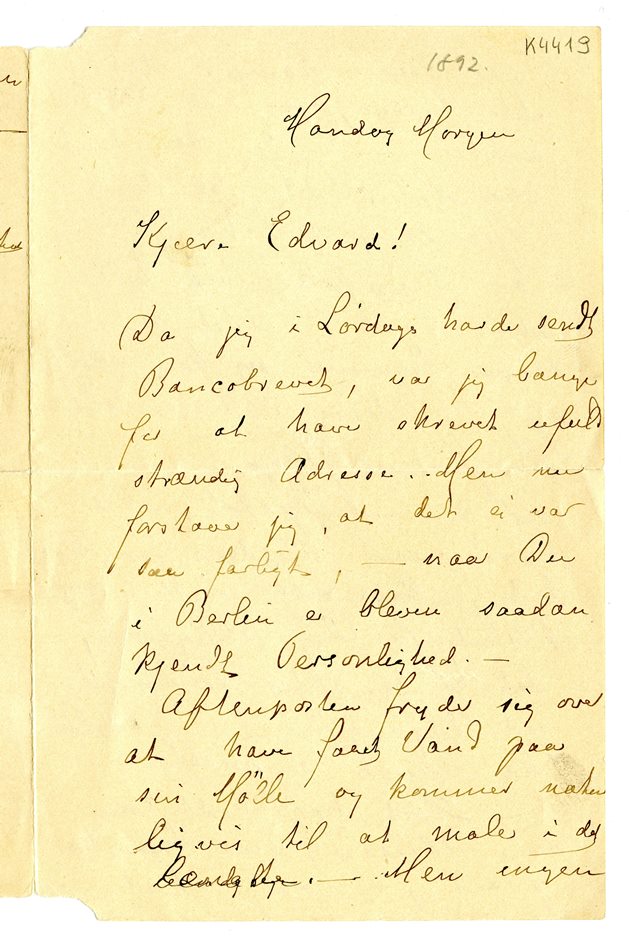 K4419
1892.
Mandag Morgen
Kjære Edvard!
Da jeg i Lørdags havde sendt
Bancobrevet, var jeg bange
for at have skrevet ufuld
stændig Adresse. Men nu
forstaar jeg, at det ei var
saa farligt, — naar Du
i Berlin er bleven saadan
kjendt Personlighed. —
Aftenposten fryder sig over
at have faaet Vand paa
sin Mølle og kommer naturlig
ligvis til at male i det
. — Men ingen